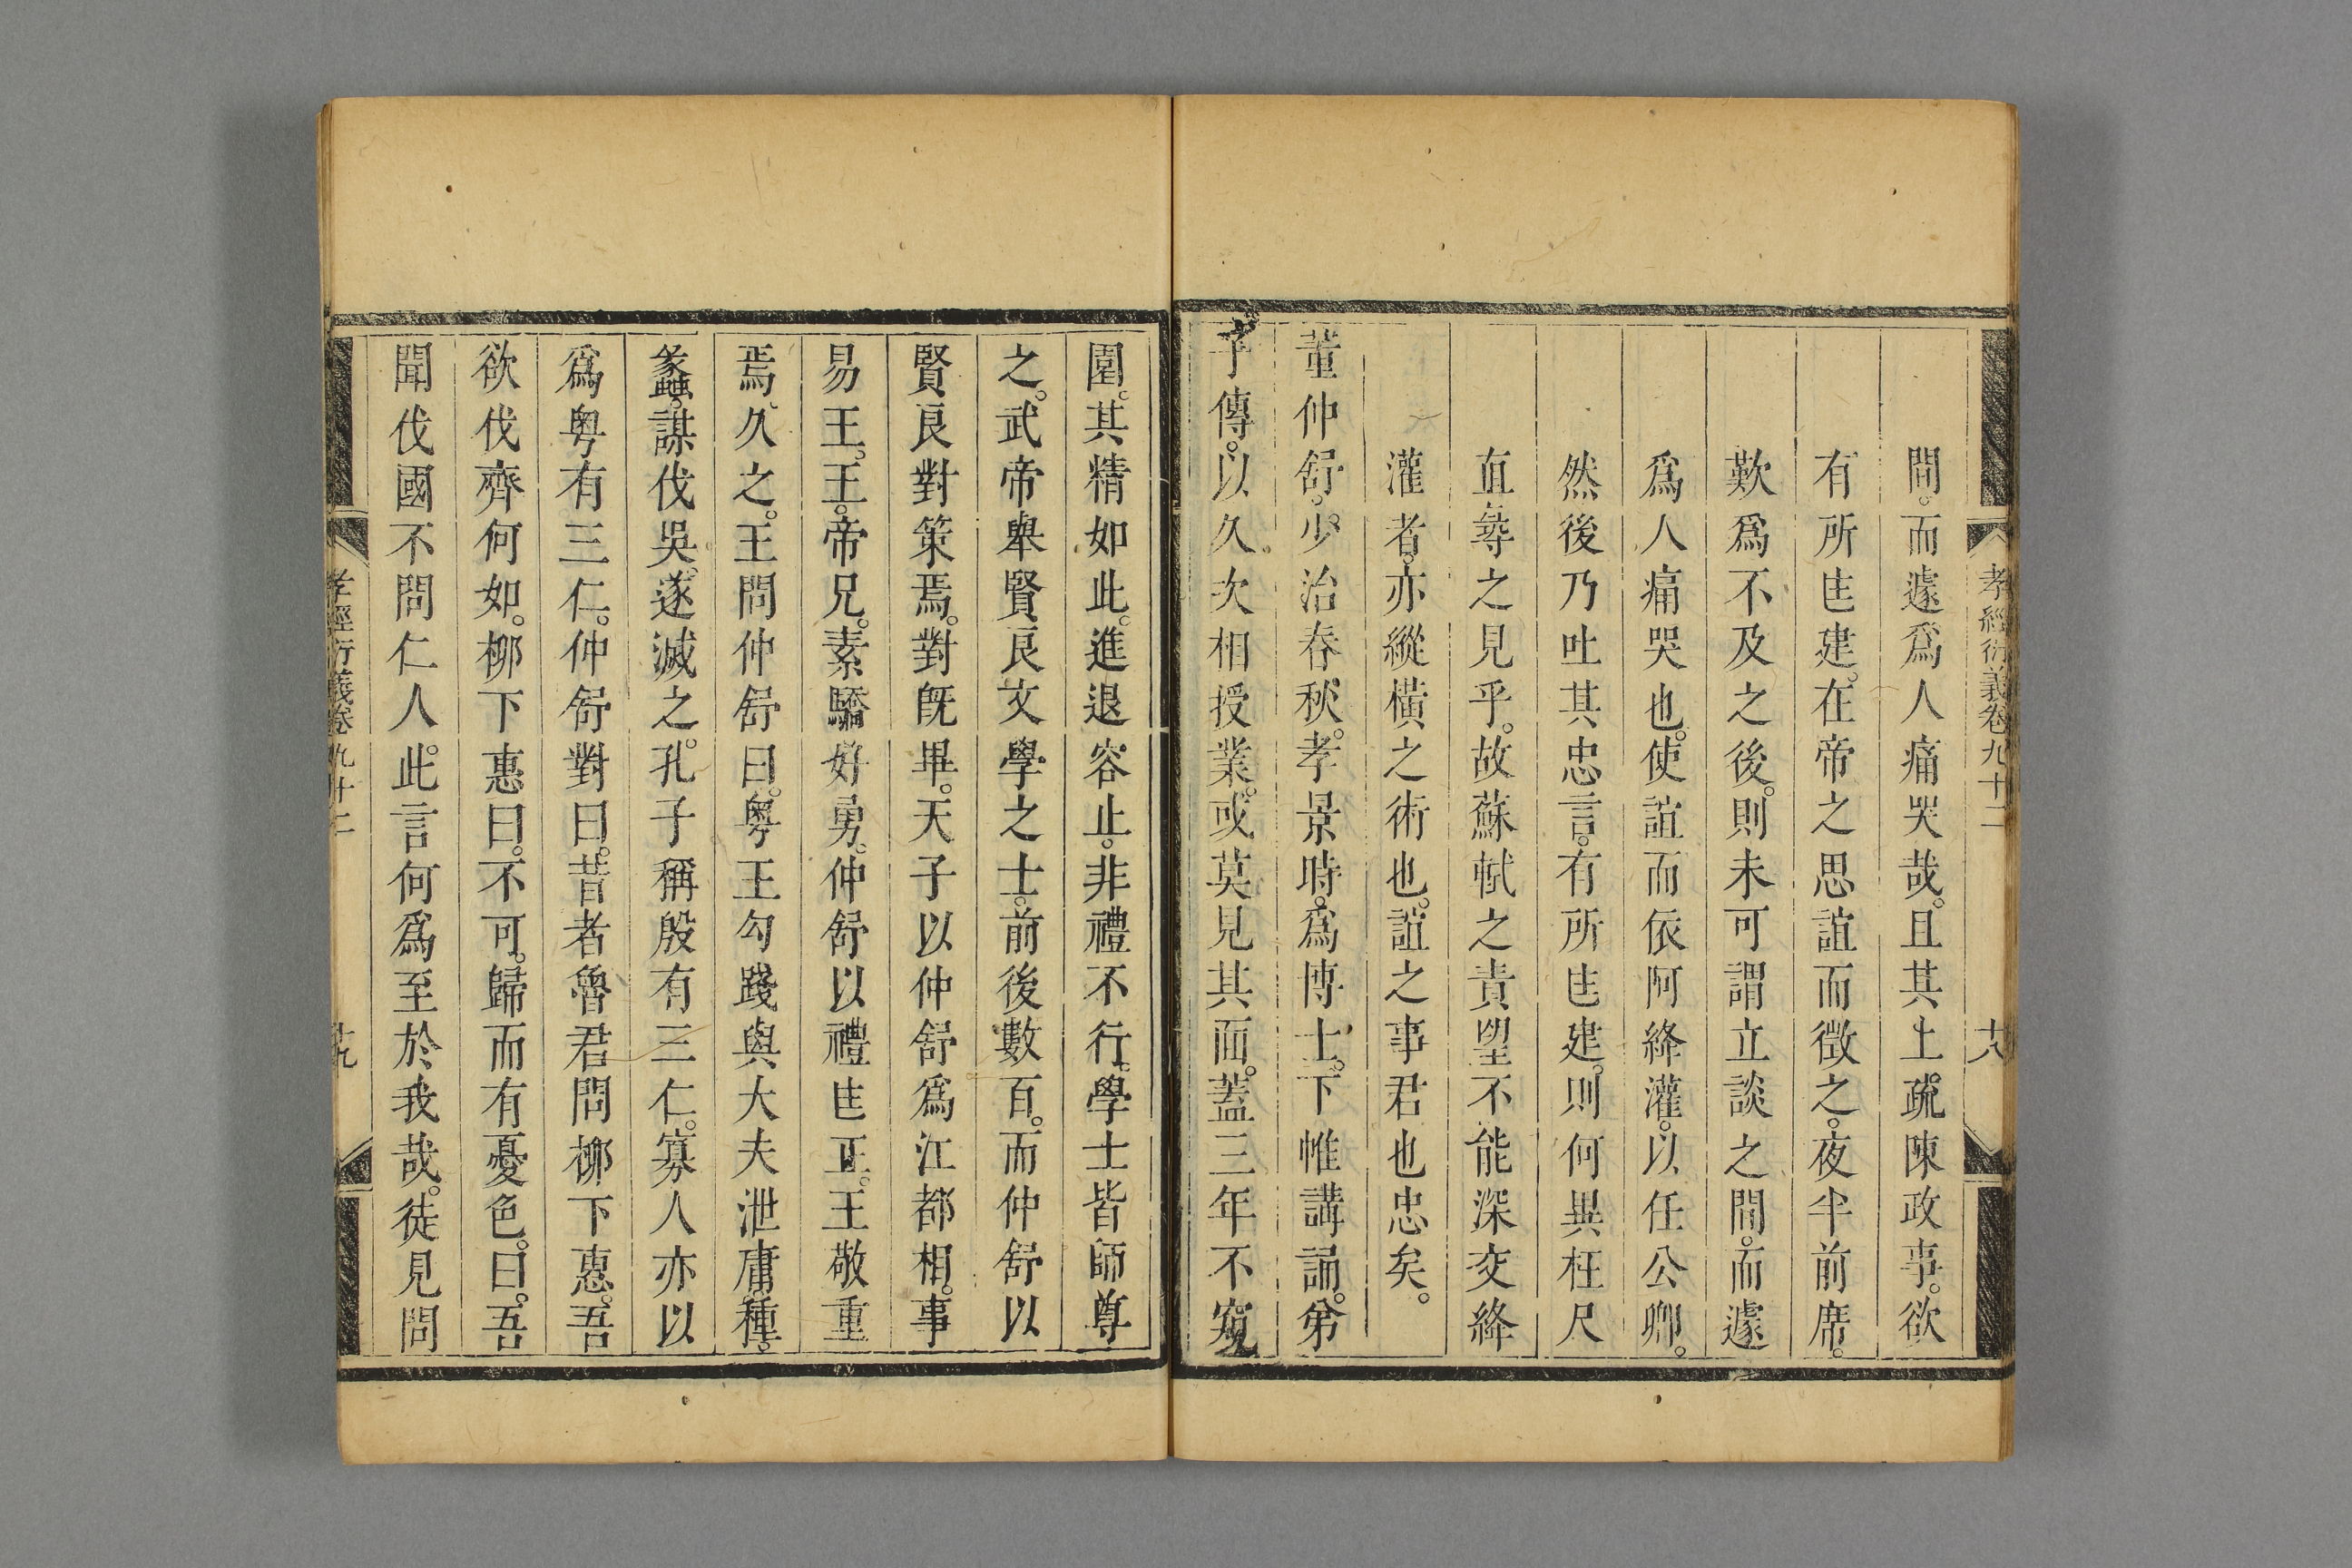 孝經衍義卷九十二 十八
間。而遽爲人痛哭哉。且其上疏陳政事。欲
有所匡建。在帝之思誼而徵之。夜半前席。
歎爲不及之後。則未可謂立談之間。而遽
爲人痛哭也。使誼而依阿絳灌。以任公卿。
然後乃吐其忠言。有所匡建。則何異枉尺
直尋之見乎。故蘇軾之責望不能深交絳
灌者。亦縱橫之術也。誼之事君也忠矣。
董仲舒。少治春秋。孝景時。爲博士。下帷講誦。弟
子傳。以久次相授業。或莫見其面。蓋三年不窺
園。其精如此。進退容止。非禮不行。學士皆師尊
之。武帝舉賢良文學之士。前後數百。而仲舒以
賢良對策焉。對既畢。天子以仲舒爲江都相。事
易王。王。帝兄。素驕好勇。仲舒以禮匡正。王敬重
焉。久之。王問仲舒曰。粵王勾踐與大夫泄庸。種。
蠡。謀伐吳。遂滅之。孔子稱殷有三仁。寡人亦以
爲粵有三仁。仲舒對曰。昔者魯君問柳下惠。吾
欲伐齊何如。柳下惠曰。不可。歸而有憂色。曰。吾
聞伐國不問仁人。此言何爲至於我哉。徒見問
孝經衍義卷九十二 十九